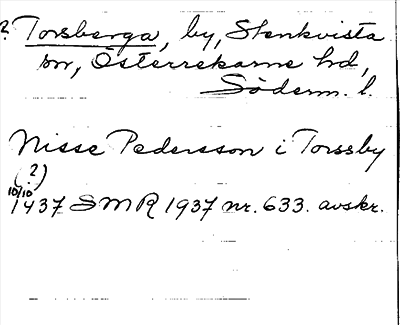 ? Torsberga, by, Stenkvista
sn, Österrekarne hd,
Söderm. l.
Nisse Pedersson i Torssby
(?)
10/10
1437 SMR 1937 nr. 633. avskr.